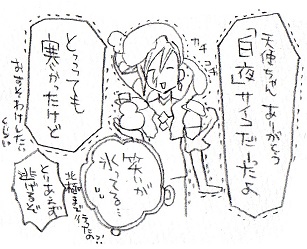 天使ちん ありがとう
「白夜サイコだーったよ
カチ
コチ
とっっても
寒かったけど
おすそわけしたい
くらい
笑が
氷ってる…
北極まで行ったのっ!?
とりあえず
逃げるぞ